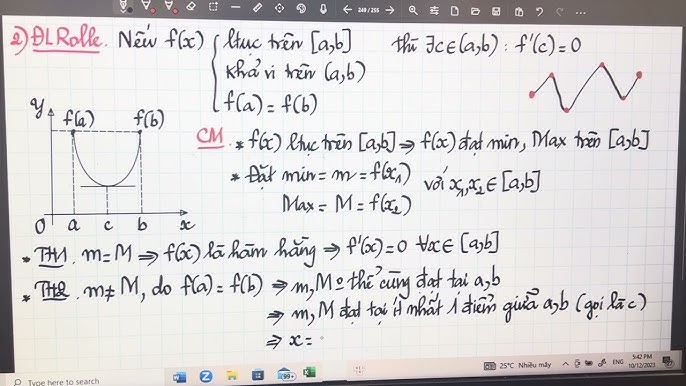 249 / 255
2) ĐL Rolle. Nếu f(x) { ltục trên [a,b] thì ∃c∈(a,b) : f'(c)=0
khả vi trên (a,b)
f(a) = f(b)
y f(a) f(b)
CM * f(x) ltục trên [a,b] ⇒ f(x) đạt min, Max trên [a,b]
* Đặt min = m = f(x₁) với x₁,x₂∈[a,b]
Max = M = f(x₂)
O a c b x
* TH1. m=M ⇒ f(x) là hàm hằng ⇒ f'(x)=0 ∀x∈[a,b]
* TH2. m≠M, do f(a)=f(b) ⇒ m,M o thể cùng đạt tại a,b
⇒ m,M đạt tại ít nhất 1 điểm giữa a,b (gọi là c)
⇒ x =
Type here to search
99+
25°C Nhiều mây
5:42 PM
10/12/2023